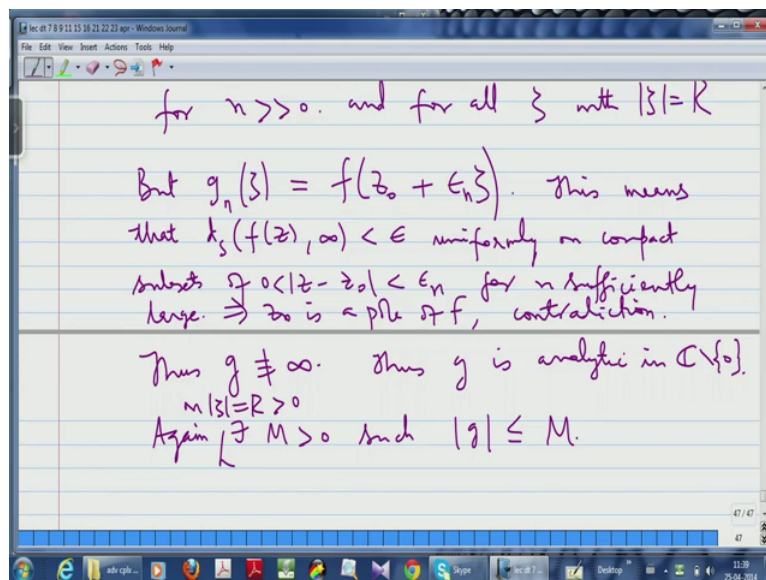 lec dt 7 8 9 11 15 16 21 22 23 apr - Windows Journal
File Edit View Insert Actions Tools Help
for n >> 0. and for all ζ with |ζ| = R
But gₙ(ζ) = f(z₀ + ϵₙζ). This means
that dₛ(f(z), ∞) < ϵ uniformly on compact
subsets of 0<|z - z₀| < ϵₙ for n sufficiently
large. ⇒ z₀ is a pole of f, contradiction.
Thus g ≢ ∞. Thus g is analytic in ℂ\{0}.
on |ζ|=R>0
Again ∃ M>0 such |g| ≤ M.
47 / 47
47
adv cplx ...
Skype
lec dt 7 ...
Desktop
11:39
25-04-2014